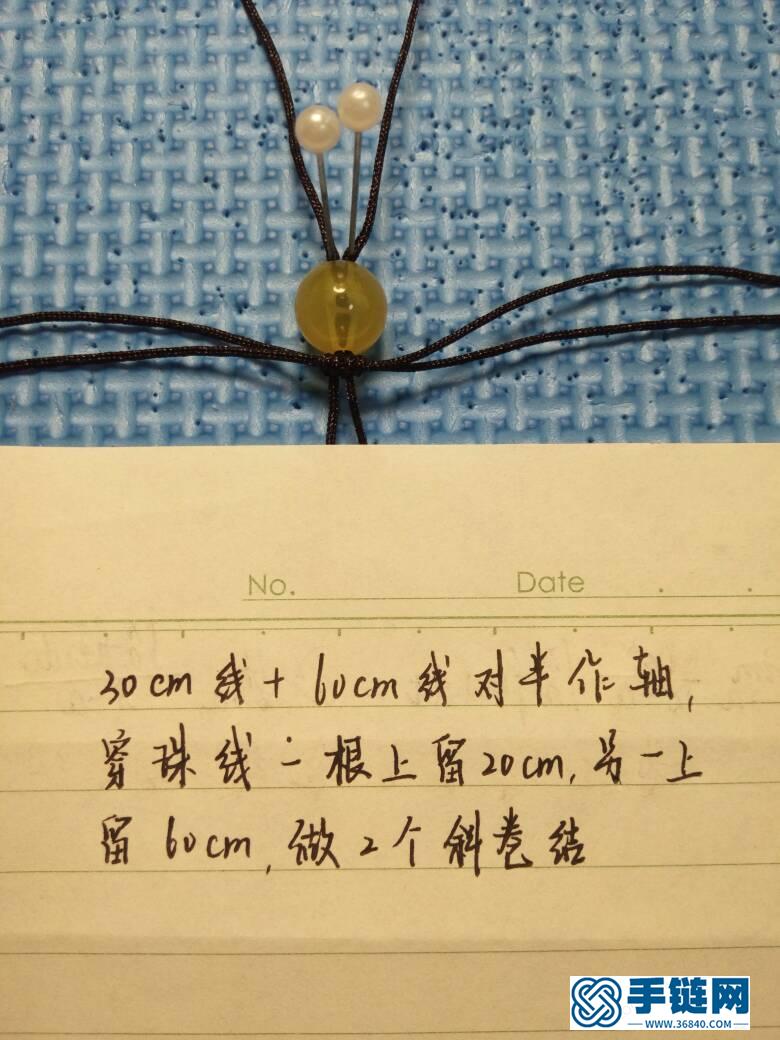 No. Date
30cm线+60cm线对半作轴,
穿珠线一根上留20cm,另一上
留60cm,做2个斜卷结
手链网
WWW.36840.COM